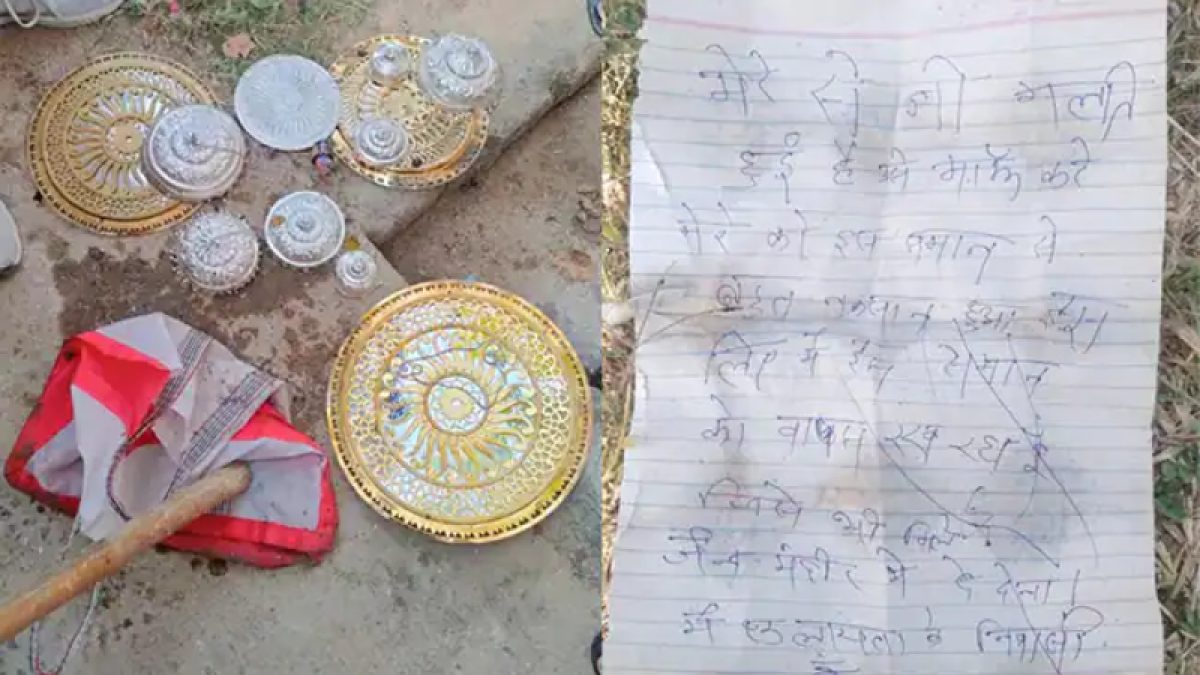 मेरे से जो गलती
हुई है वो माफ करे
मेरे को इस समान से
बहुत नुकसान हुआ इस
लिए मैं इस समान
को वापस रख रहा हूं
जिसे भी मिले
जैन मंदीर मे दे देना।
मैं के